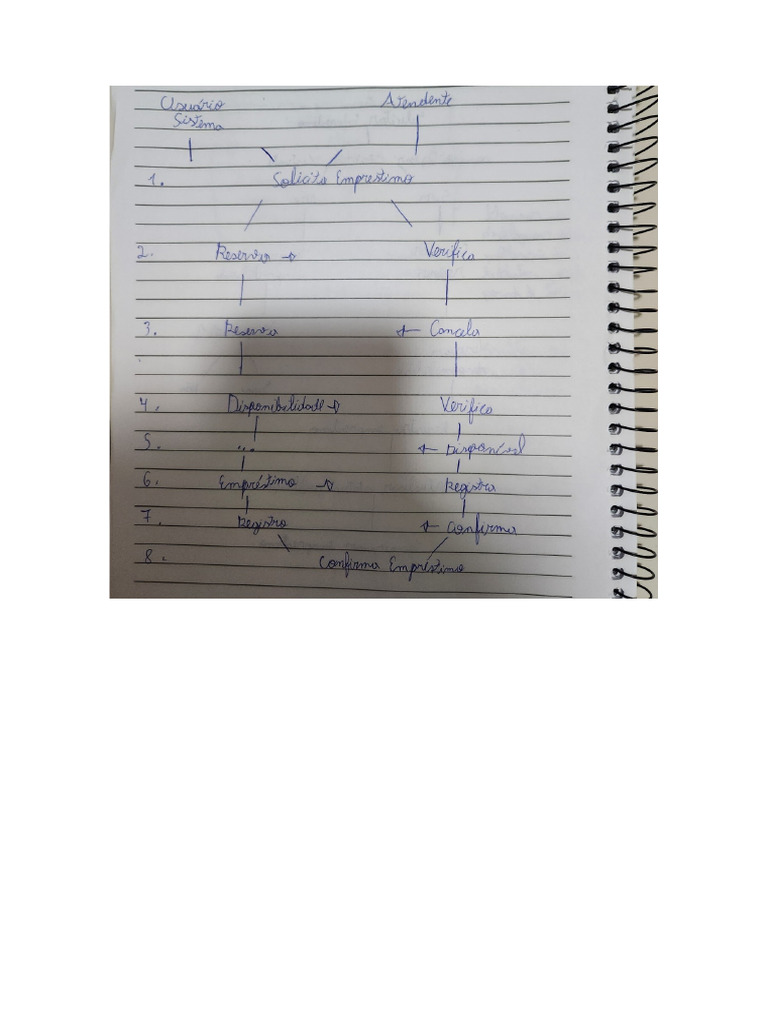 Usuário Atendente
Sistema
1. Solicita Emprestimo
2. Reserva → Verifica
3. Reserva ← Cancela
4. Disponibilidade → Verifica
5. ... ← Disponível
6. Empréstimo → Registra
7. Registro ← Confirma
8. Confirma Empréstimo